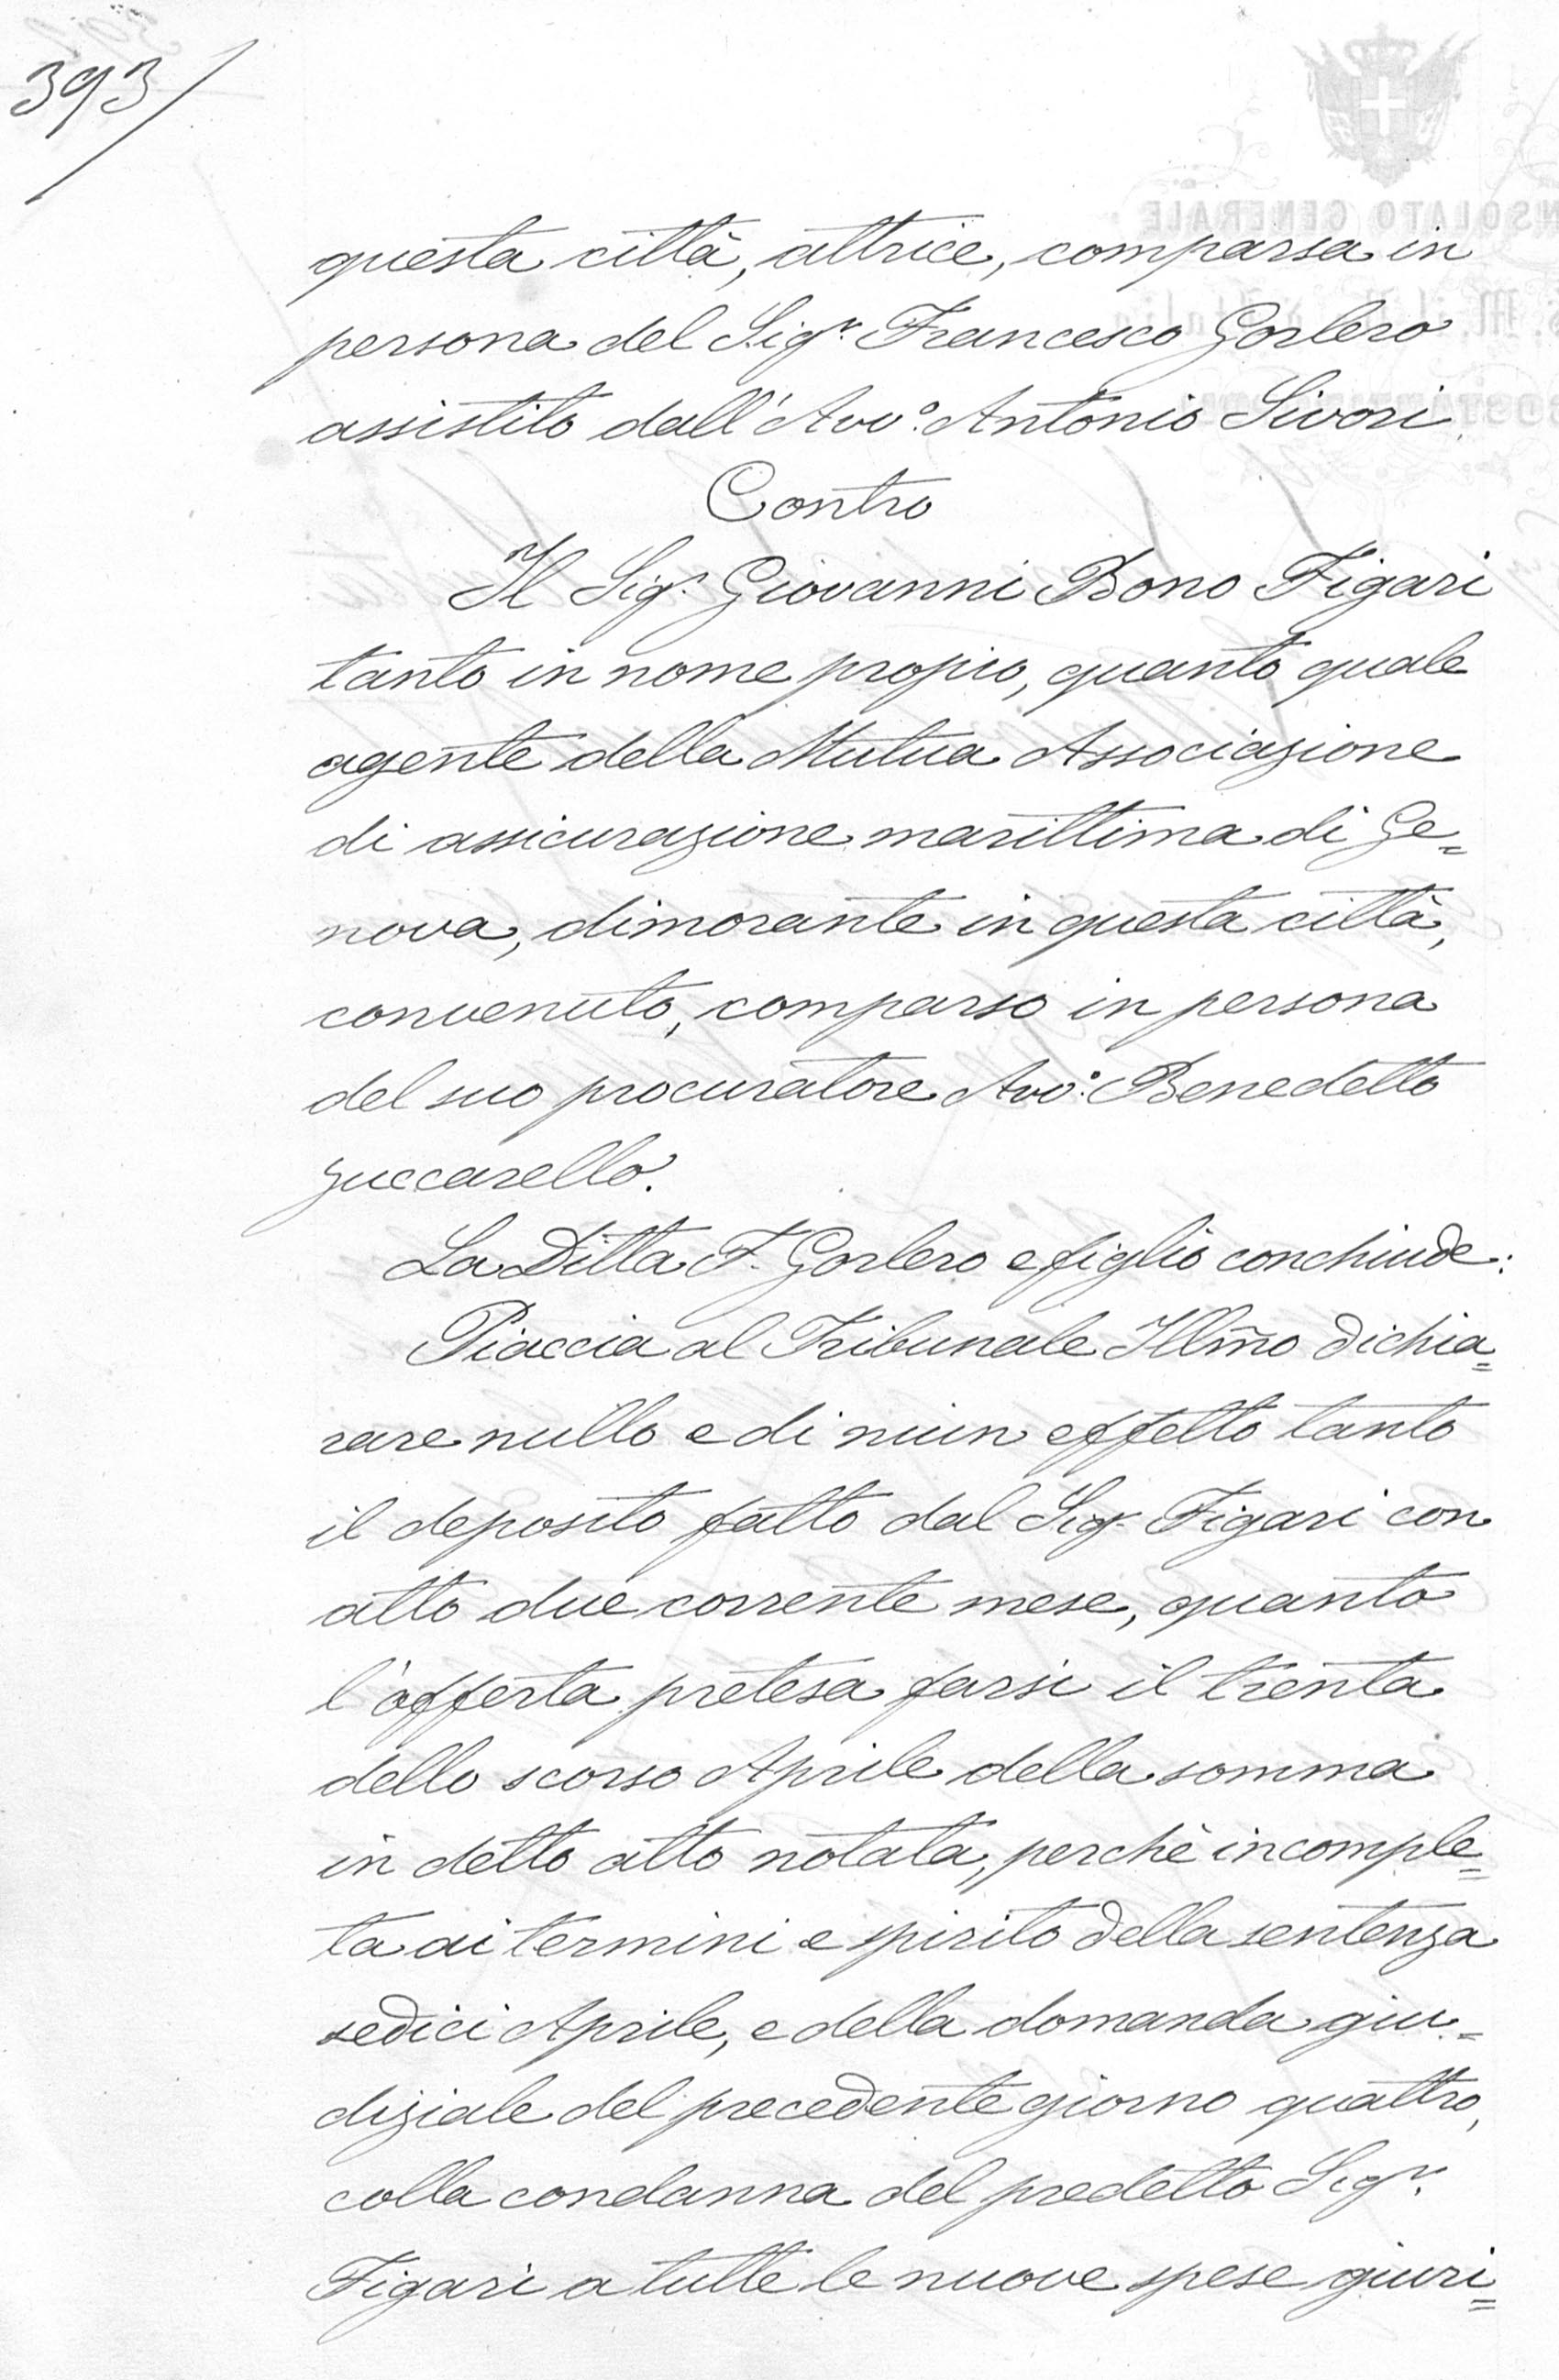 393/
questa città, attrice, comparsa in
persona del Sigr. Francesco Gorlero
assistito dall'Avvo. Antonio Sivori
Contro
Il Sigr. Giovanni Bono Figari
tanto in nome propio, quanto quale
agente della Mutua Associazione
di assicurazione marittima di Ge=
nova, dimorante in questa città,
convenuto, comparso in persona
del suo procuratore Avvo. Benedetto
Zuccarello.
La Ditta F. Gorlero e figlio conchiude:
Piaccia al Tribunale Illmo dichia=
rare nullo e di niun effetto tanto
il deposito fatto dal Sigr. Figari con
atto due corrente mese, quanto
l'offerta pretesa farsi il trenta
dello scorso Aprile della somma
in detto atto notata, perchè incomple=
ta ai termini e spirito della sentenza
sedici Aprile, e della domanda giu=
diziale del precedente giorno quattro,
colla condanna del predetto Sigr.
Figari a tutte le nuove spese giuri=